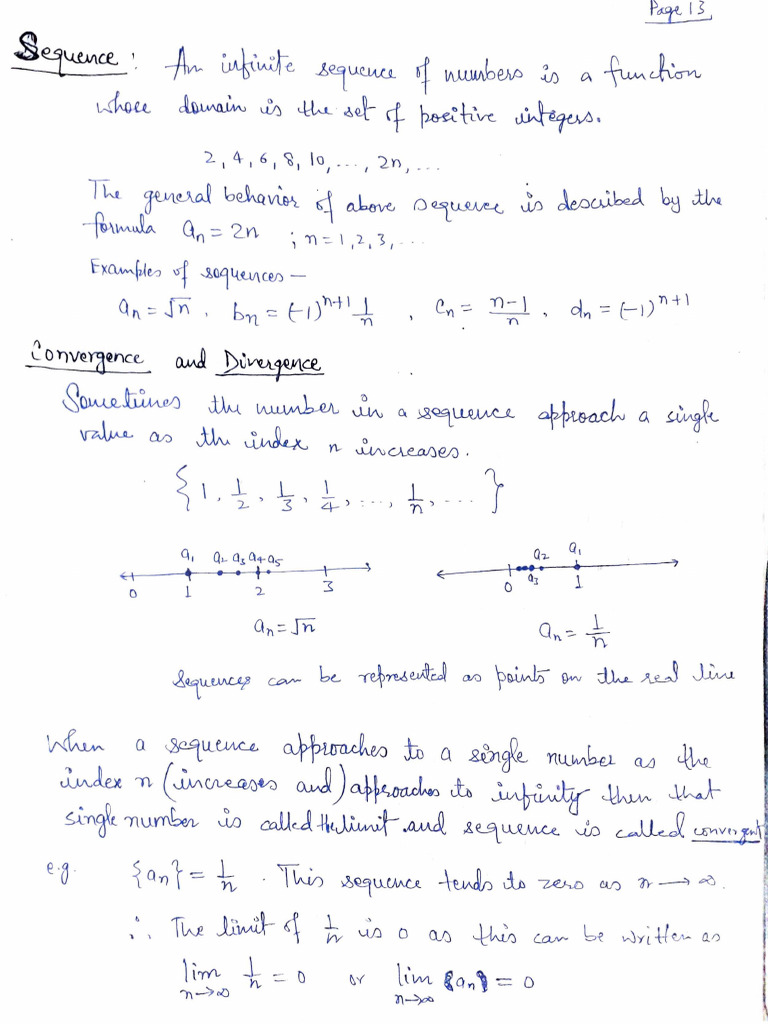 Page 13
Sequence : An infinite sequence of numbers is a function
whose domain is the set of positive integers.
2, 4, 6, 8, 10, ..., 2n, ...
The general behavior of above sequence is described by the
formula aₙ = 2n ; n = 1, 2, 3, ...
Examples of sequences —
aₙ = √n , bₙ = (-1)ⁿ⁺¹ 1/n , cₙ = (n-1)/n , dₙ = (-1)ⁿ⁺¹
Convergence and Divergence
Sometimes the number in a sequence approach a single
value as the index n increases.
{ 1, 1/2, 1/3, 1/4, ..., 1/n, ... }
a₁ a₂ a₃ a₄ a₅
0 1 2 3
aₙ = √n
a₂ a₁
0 a₃ 1
aₙ = 1/n
Sequences can be represented as points on the real line
When a sequence approaches to a single number as the
index n (increases and) approaches to infinity then that
single number is called the limit and sequence is called convergent
e.g. {aₙ} = 1/n . This sequence tends to zero as n → ∞.
∴ The limit of 1/n is 0 as this can be written as
lim n→∞ 1/n = 0 or lim n→∞ {aₙ} = 0